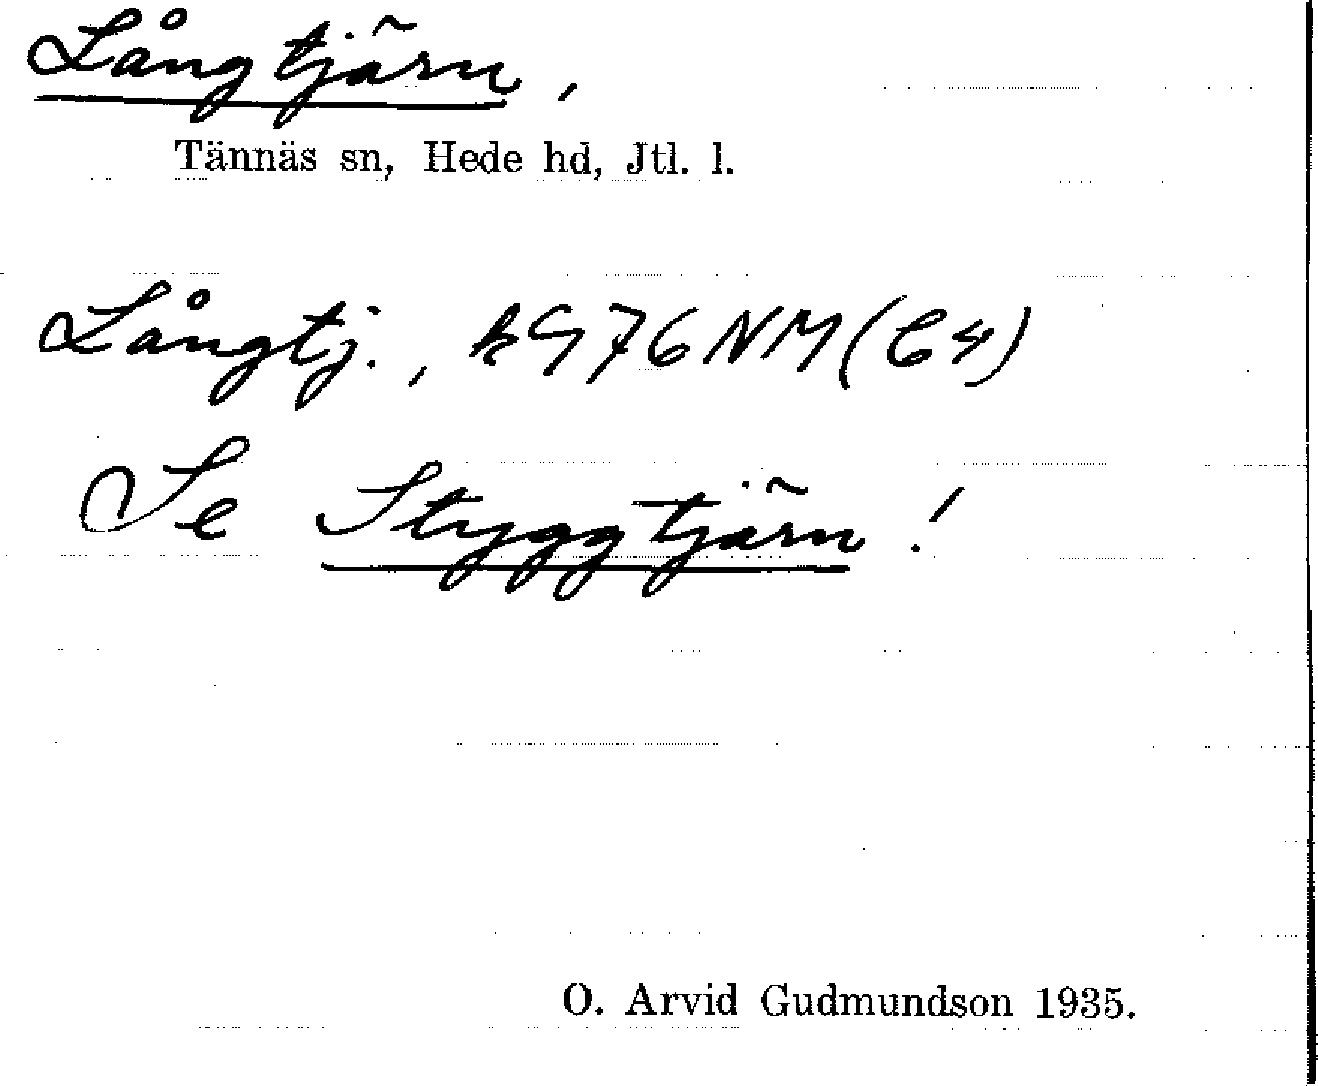 Långtjärn,
Tännäs sn, Hede hd, Jtl. l.
Långtj., k976NM(C4)
Se Styggtjärn!
O. Arvid Gudmundson 1935.